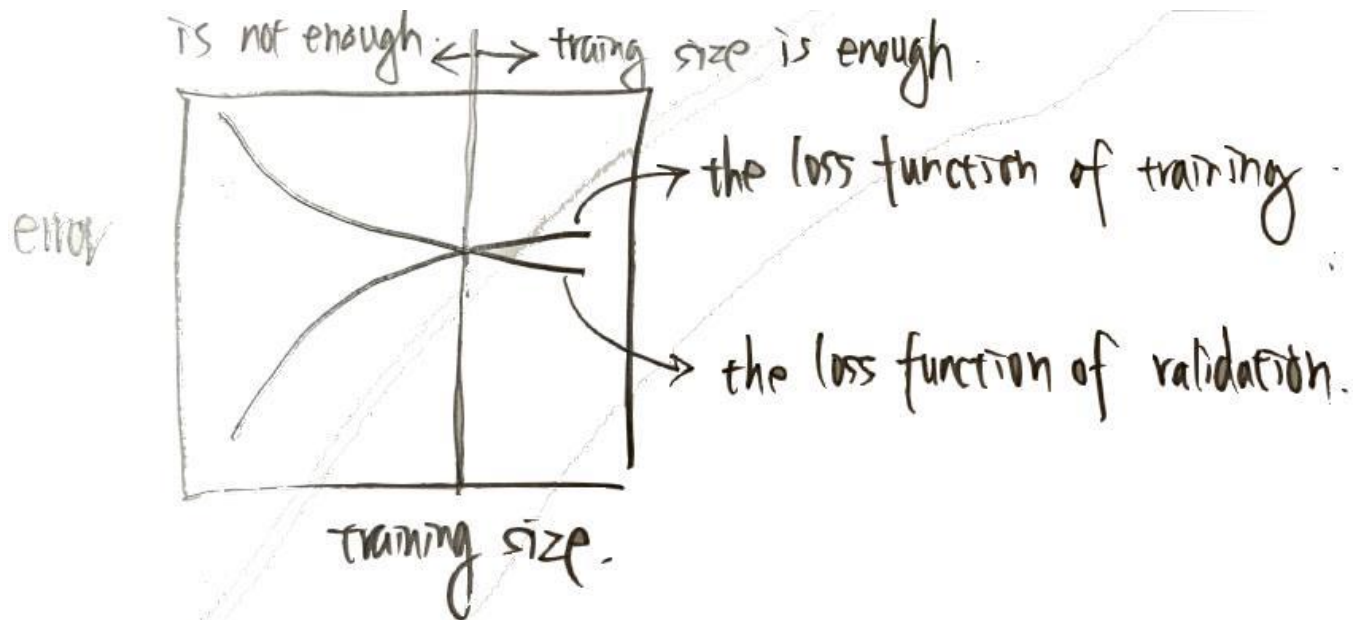 is not enough. traing size is enough.
the loss function of training.
error
the loss function of validation.
training size.